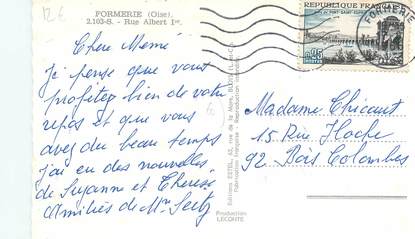 12 €
FORMERIE (Oise).
2.103-S. - Rue Albert 1er.
Cher Mémé
je pense que vous
profitez bien de votre
repos et que vous
avez du beau temps
j'ai en des nouvelles
de Suzanne et Therese
Amitiés de Mr
REPUBLIQUE FRANCAISE
PONT-SAINT-ESPRIT
0,25
POSTES
FORMERIE
Madame Chicaut
15 Rue Hoche
92 Bois Colombes
Production
LECONTE